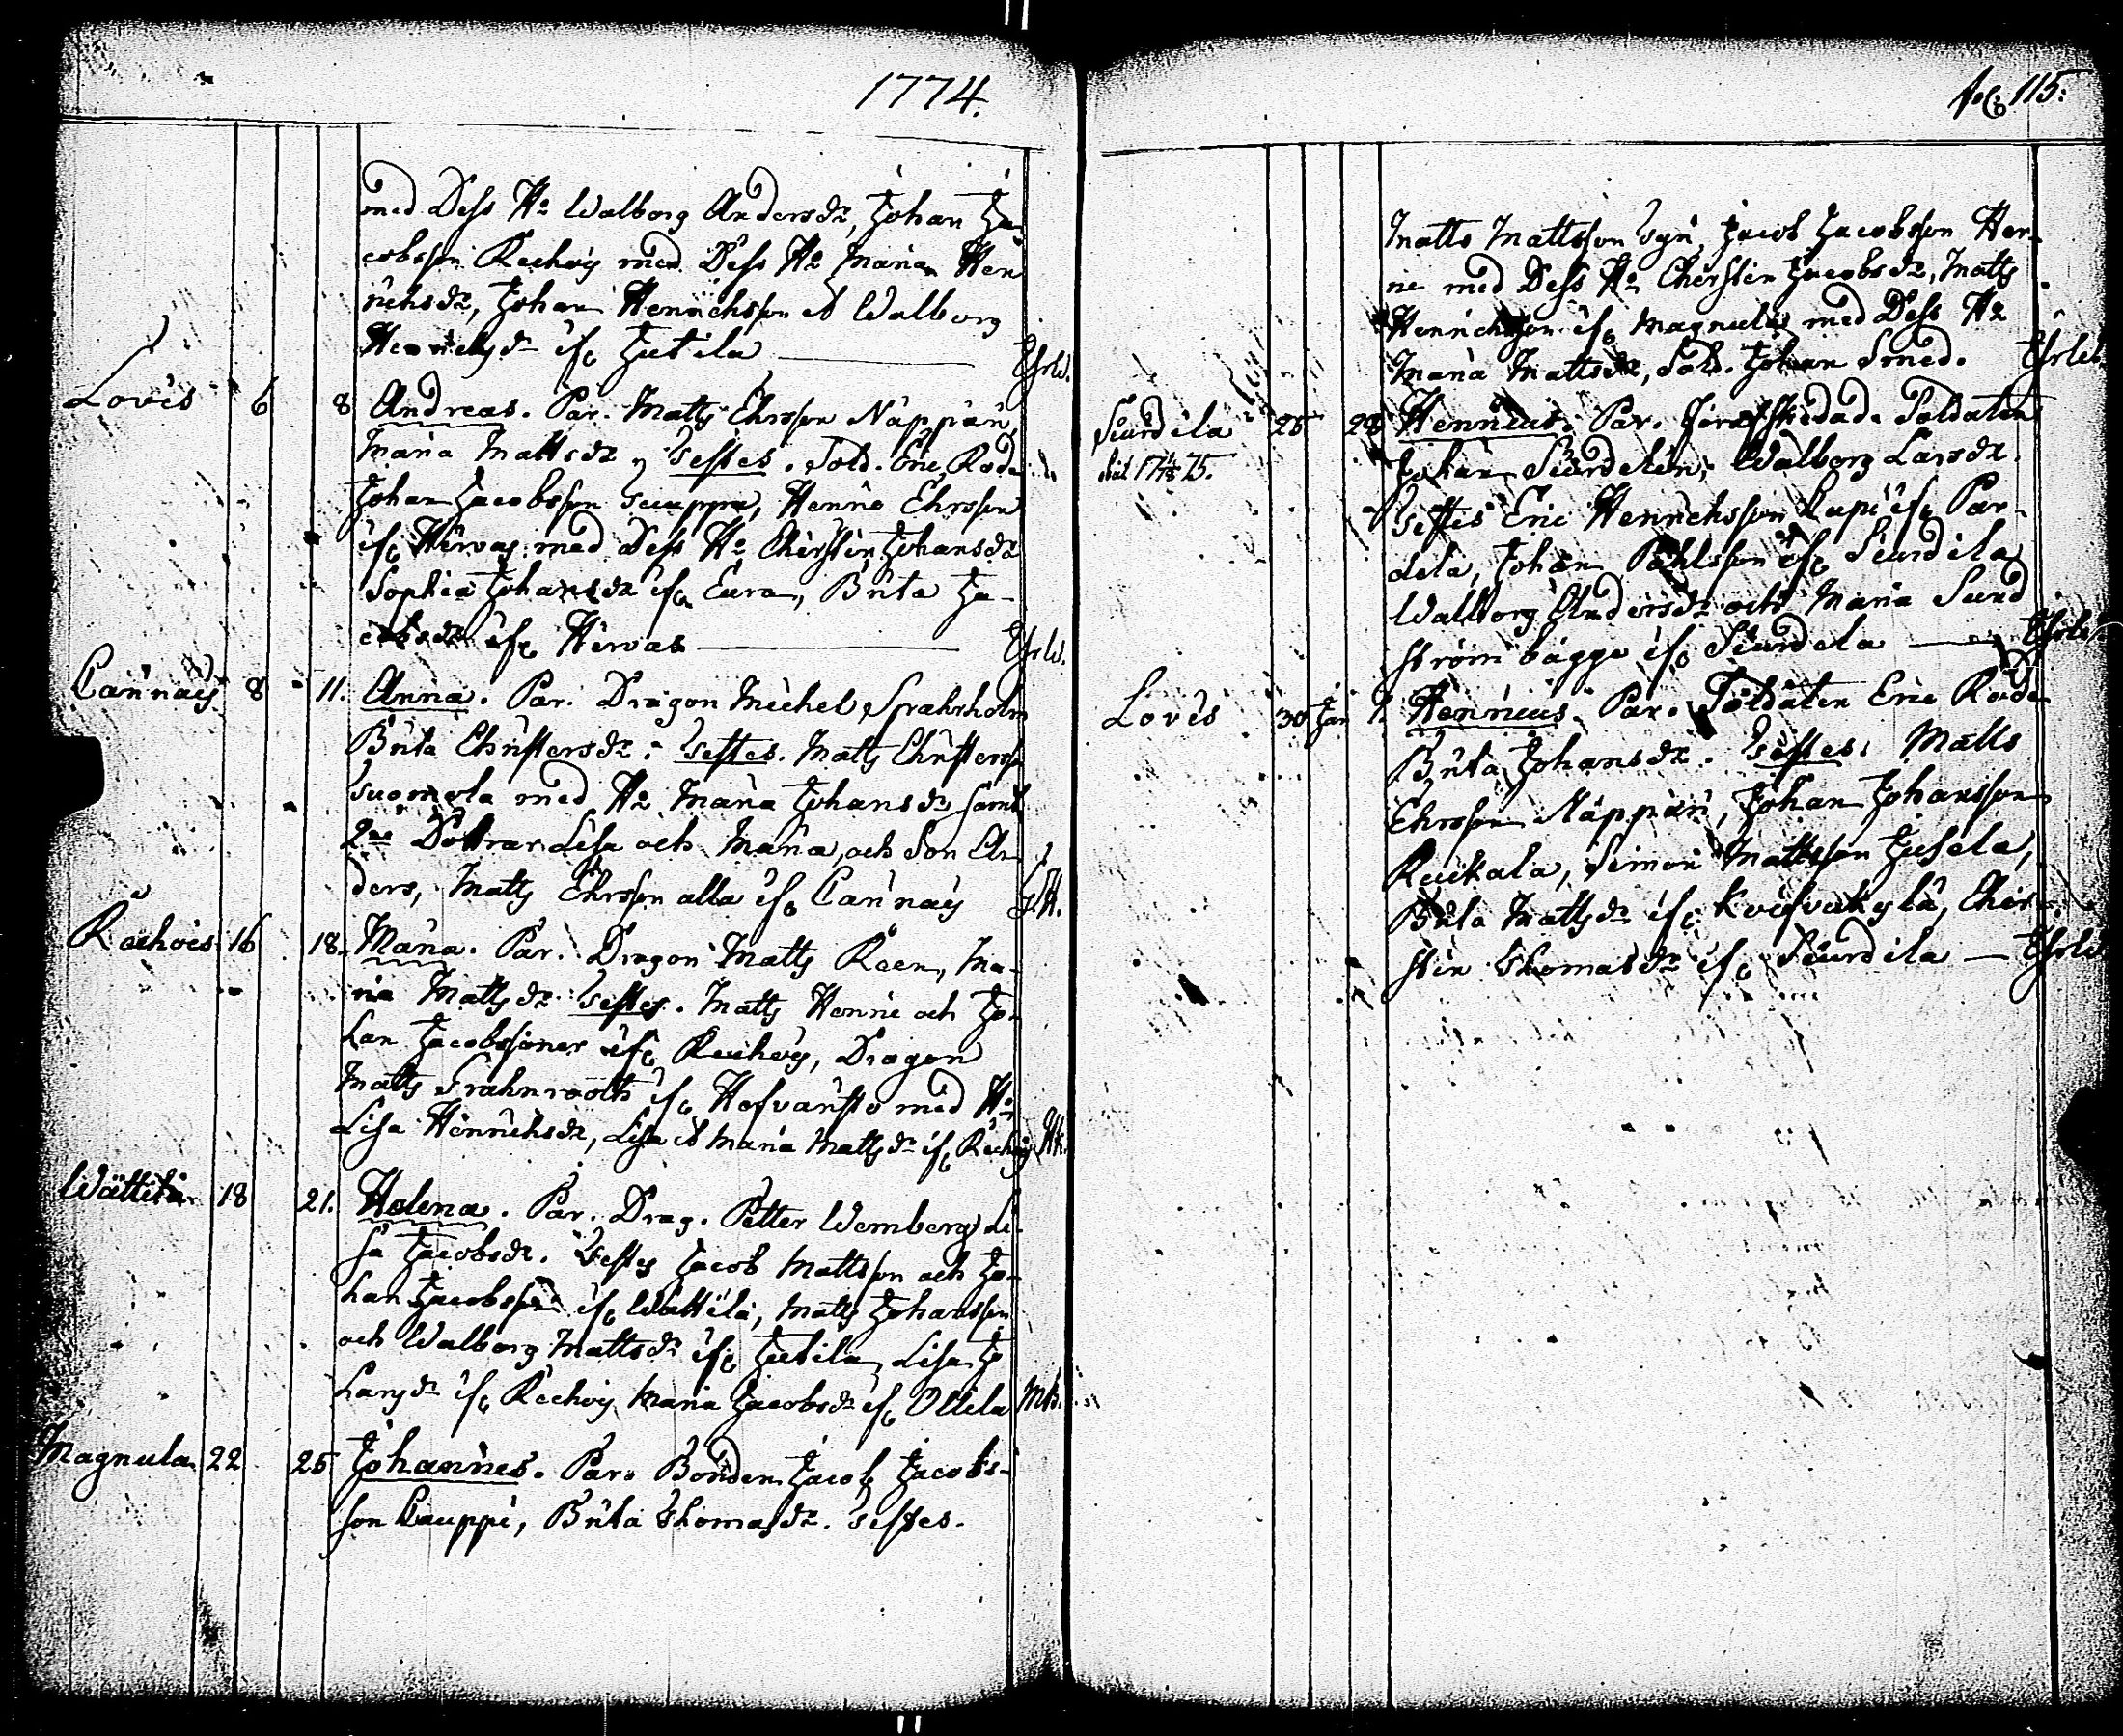 1774.
med Dess H:o Walborg Andersdr, Johan Ja-
cobsson Keckois med Dess H:o Maria Hen
richsdr, Johan Henrichsson et Walborg
Henrichsdr ifr Jutila — Ehrw.
Lovis 6 8 Andreas. Par. Matts Ehrsson Näppäri,
Maria Mattsdr, Testes. Sold. Eric Rode
Johan Jacobsson Scauppa, Henric Ehrsson
ifr Hirvas med Dess H:o Chierstin Johansdr
Sophia Johansdr ifr Eura, Brita Ja-
cobsdr ifr Hirvas — Ehrw.
Cannais 8 11. Anna. Par. Dragon Michel Sprahrholm
Brita Christersdr. Testes. Matts Christersson
Suomela med H:o Maria Johansdr samt
2ne Döttrar Lisa och Maria, och Son An
ders, Matts Ehrsson alla ifr Cannais
Kaehois 16 18. Maria. Par. Dragon Matts Keen, Ma-
ria Mattsdr Testes. Matts Henric och Jo-
han Jacobssöner ifr Keckois, Dragon
Matts ifr med H:o
Lisa Henrichsdr, Lisa et Maria Mattsdr ifr Keckois
Wättilä 18 21. Helena. Par. Drag. Petter Wemberg Li-
sa Jacobsdr. Testes Jacob Mattsson och Jo-
han Jacobsson ifr Wättilä, Matts Johansson
och Walborg Mattsdr ifr Jutila, Lisa Jo
hansdr ifr Keckois Maria Jacobsdr ifr Ollila
Magnula 22 25 Johannes. Par. Bonden Jacob Jacobs-
son Cauppi, Brita Thomasdr. Testes.
fol. 115.
Matts Mattsson Jacob Jacobsson Hen-
ric med Dess H:o Chierstin Jacobsdr, Matts
Henrichsson ifr Magnula med Dess H:o
Maria Mattsdr, Sold. Johan Smed. Ehrw.
Siurdila 25 28 Henricus. Par. Soldaten
1775.
Johan Walborg Larsdr.
Testes Eric Henrichsson ifr Par-
dela, Johan Påhlsson ifr Siurdila
Walborg Andersdr och Maria Sund
ström bägge ifr Siurdela — Ehrw.
Lovis 30 Jan 1. Henricus. Par. Soldaten Eric Rode
Brita Johansdr. Testes. Matts
Ehrsson Näppäri, Johan Johansson
Kuckala, Simon Mattsson Jusela,
Brita Mattsdr ifr Chier-
stin Thomasdr ifr Siurdila — Ehrw